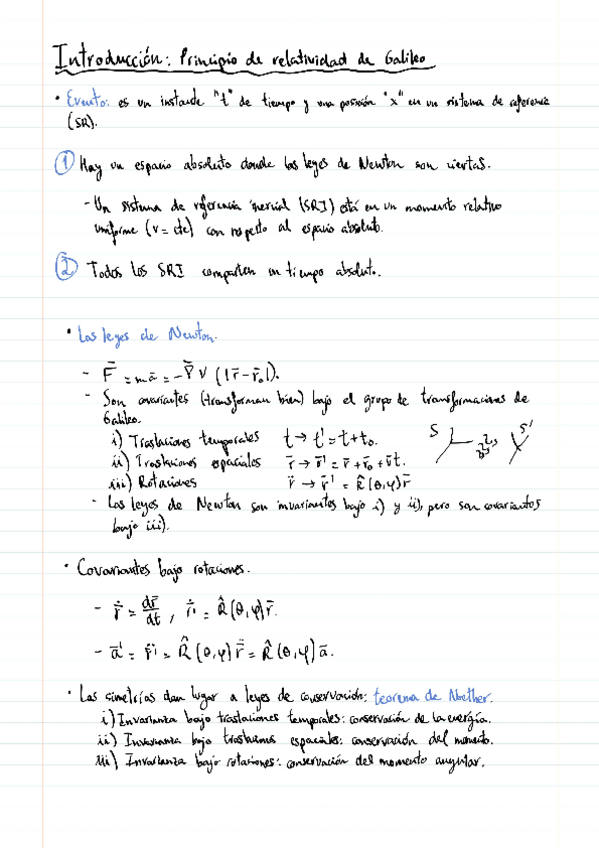 Introducción: Principio de relatividad de Galileo
• Evento: es un instante "t" de tiempo y una posición "x" en un sistema de referencia
(SR).
① Hay un espacio absoluto donde las leyes de Newton son ciertas.
- Un sistema de referencia inercial (SRI) está en un momento relativo
uniforme (v = cte) con respecto al espacio absoluto.
② Todos los SRI comparten un tiempo absoluto.
• Las leyes de Newton.
- F̄ = mā = -∇̄V(|r̄-r̄₀|).
- Son covariantes (transforman bien) bajo el grupo de transformaciones de
Galileo.
i) Traslaciones temporales t → t' = t + t₀.
ii) Traslaciones espaciales r̄ → r̄' = r̄ + r̄₀ + v̄t.
iii) Rotaciones r̄ → r̄' = R̂(θ,φ)r̄
S S'
- Las leyes de Newton son invariantes bajo i) y ii), pero son covariantes
bajo iii).
• Covariantes bajo rotaciones.
- ṙ̄ = dr̄/dt, ṙ̄' = R̂(θ,φ)ṙ̄.
- ā' = r̈̄' = R̂(θ,φ)r̈̄ = R̂(θ,φ)ā.
• Las simetrías dan lugar a leyes de conservación: teorema de Noether.
i) Invarianza bajo traslaciones temporales: conservación de la energía.
ii) Invarianza bajo traslaciones espaciales: conservación del momento.
iii) Invarianza bajo rotaciones: conservación del momento angular.